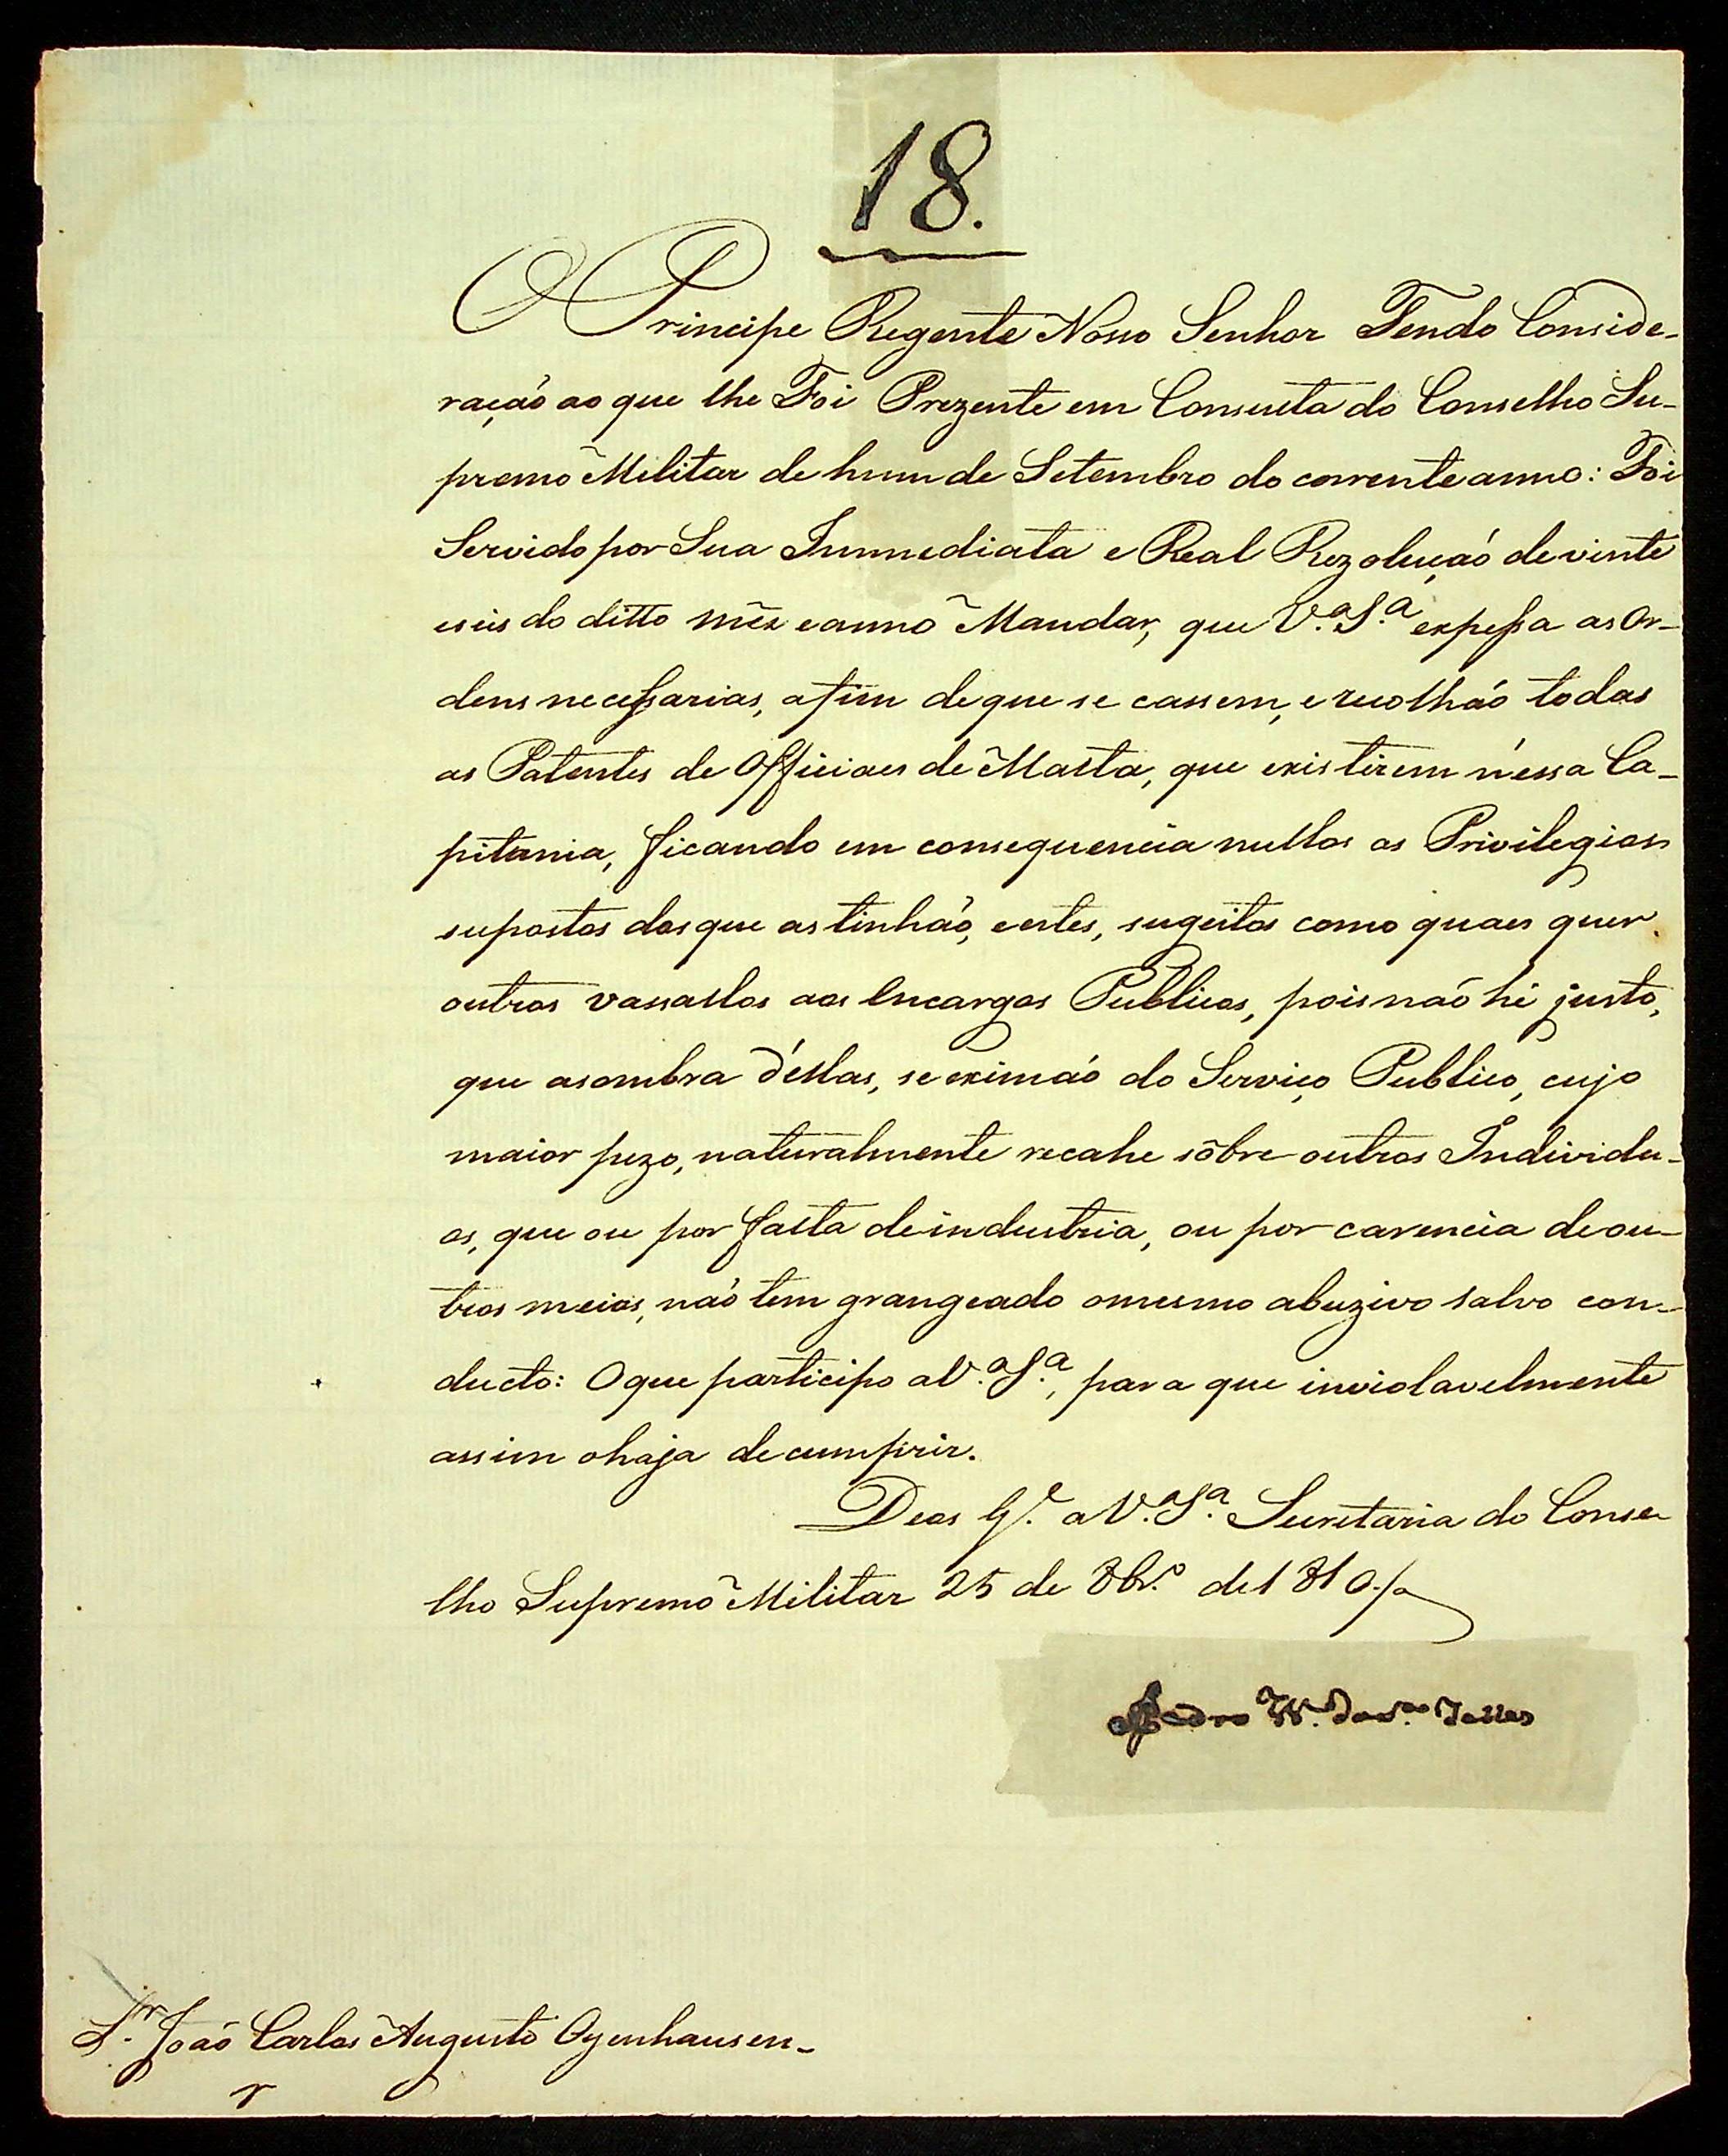 18.
O Principe Regente Nosso Senhor Tendo Conside-
ração ao que lhe Foi Prezente em Consulta do Conselho Su-
premo Militar de hum de Setembro do corrente anno: Foi
Servido por Sua Immediata e Real Rezolução de vinte
eseis do ditto mês e anno Mandar, que V.ª S.ª expessa as Or-
dens necessarias, afim de que se cassem, e recolhão todas
as Patentes de Officiaes de Malta, que existirem n'essa Ca-
pitania, ficando em consequencia nullos os Privilegios
supostos dos que as tinhão, e estes, sugeitos como quaes quer
outros vassallos aos Encargos Publicos, pois não hé justo,
que a sombra d'ellas, se eximão do Serviço Publico, cujo
maior pezo, naturalmente recahe sôbre outros Individu-
os, que ou por falta de industria, ou por carencia de ou-
tros meios, não tem grangeado o mesmo abuzivo salvo con-
ducto: O que participo a V.ª S.ª, para que inviolavelmente
assim o haja de cumprir.
Deos G.e a V.ª S.ª Secretaria do Conse-
lho Supremo Militar 25 de 8br.º de 1810.
Pedro
Telles
S.r João Carlos Augusto Oyenhausen-